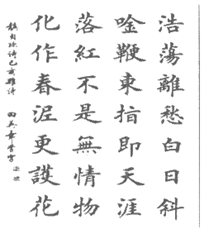 浩蕩離愁白日斜
唫鞭東指即天涯
落紅不是無情物
化作春泥更護花
龔自珍詩己亥雜詩